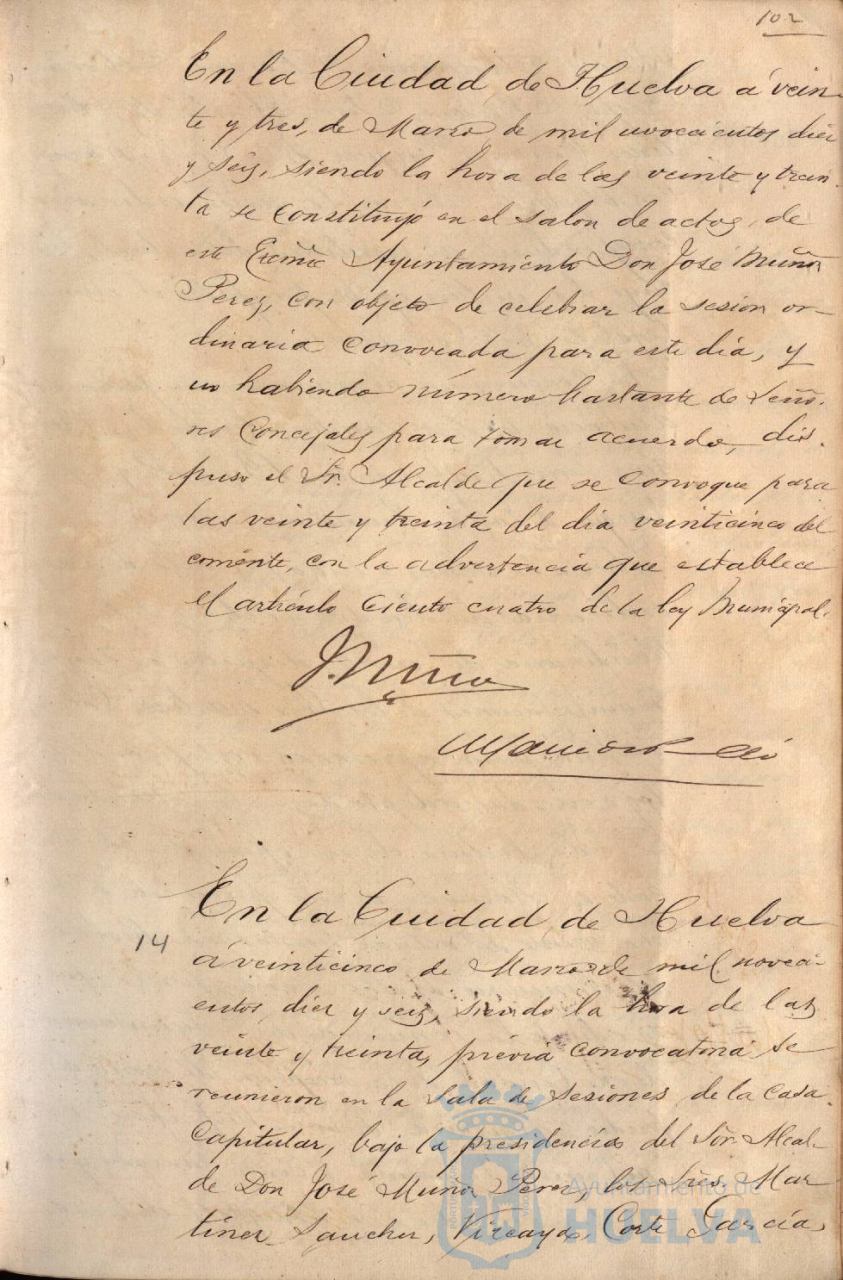 102
En la Ciudad de Huelva á vein-
te y tres, de Marzo de mil novecientos diez
y seis, siendo la hora de las veinte y trein-
ta se constituyó en el salon de actos, de
este Excmo Ayuntamiento Don José Muñoz
Perez, con objeto de celebrar la sesion or-
dinaria convocada para este dia, y
no habiendo número bastante de Seño-
res Concejales para tomar acuerdo, dis-
puso el Sr. Alcalde que se convoque para
las veinte y treinta del dia veinticinco del
corriente, con la advertencia que establece
el artículo ciento cuatro de la ley Municipal.
J. Muñoz
14
En la Ciudad de Huelva
á veinticinco de Marzo de mil novecí-
entos diez y seis, siendo la hora de las
veinte y treinta, prévia convocatoria se
reunieron en la Sala de Sesiones de la Casa
Capitular, bajo la presidencia del Sor. Alcal-
de Don José Muñoz Perez, los Sres. Mar
tinez Sanchez, Vizcaya, Corte Garcia,
Ayuntamiento de
HUELVA